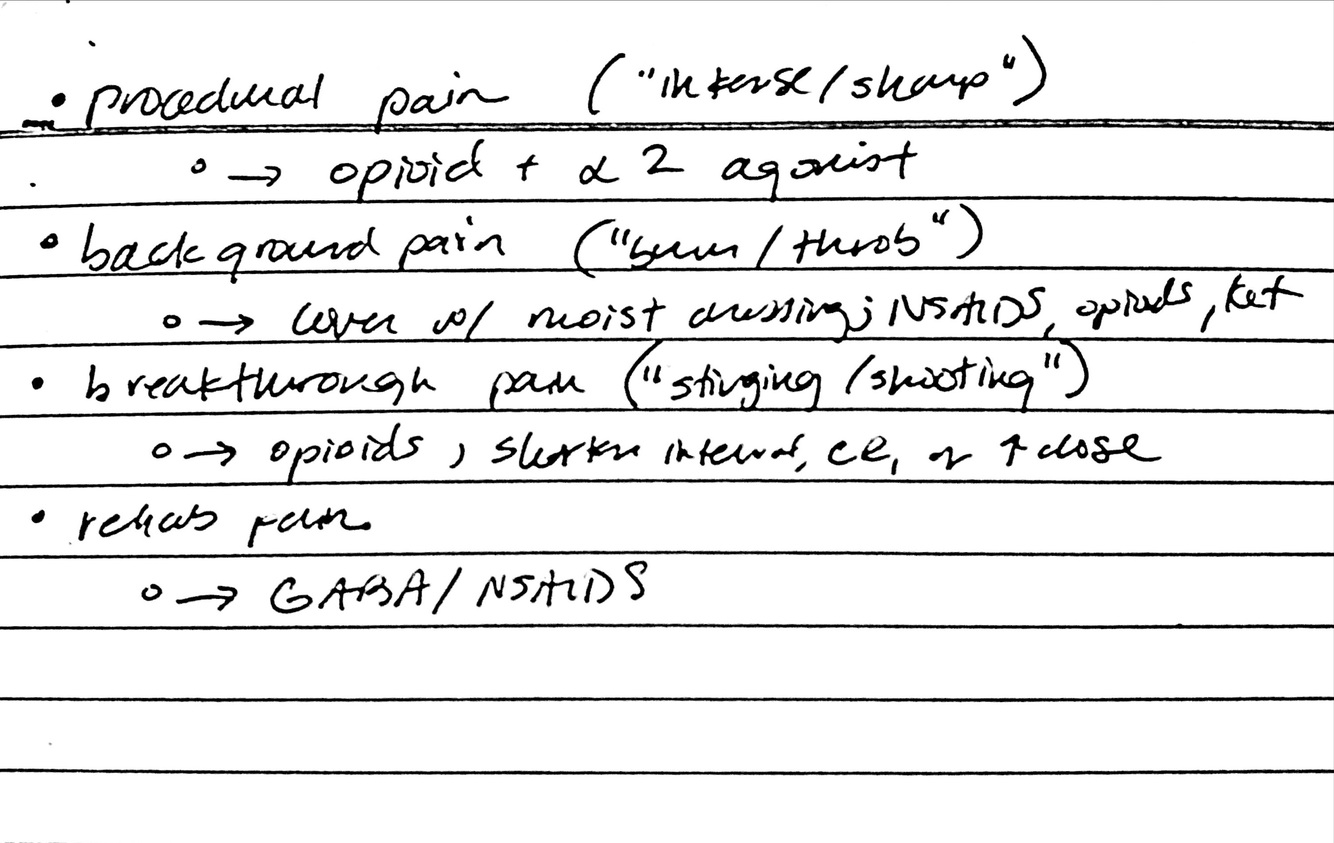 • procedural pain ("intense/sharp")
◦ → opioid + α 2 agonist
• background pain ("burn/throb")
◦ → cover w/ moist dressing; NSAIDS, opioids, ket
• breakthrough pain ("stinging/shooting")
◦ → opioids, shorten interval, CR, or ↑ dose
• rehab pain
◦ → GABA/NSAIDS